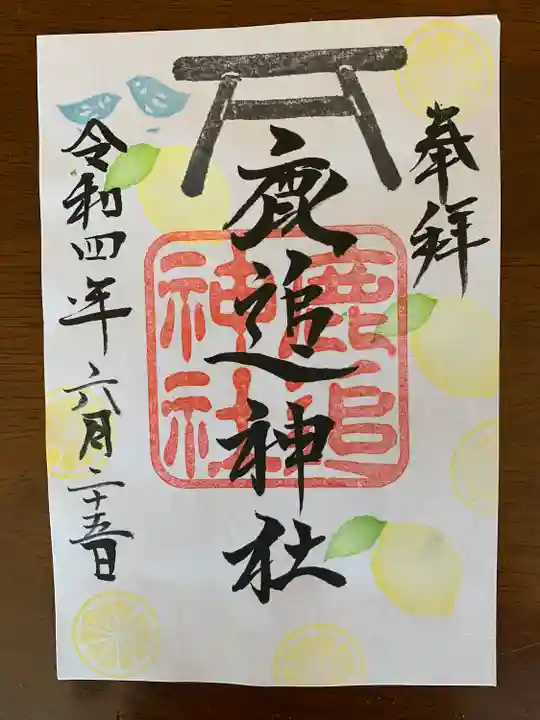 奉拝
鹿追神社
鹿追
神社
令和四年六月二十五日